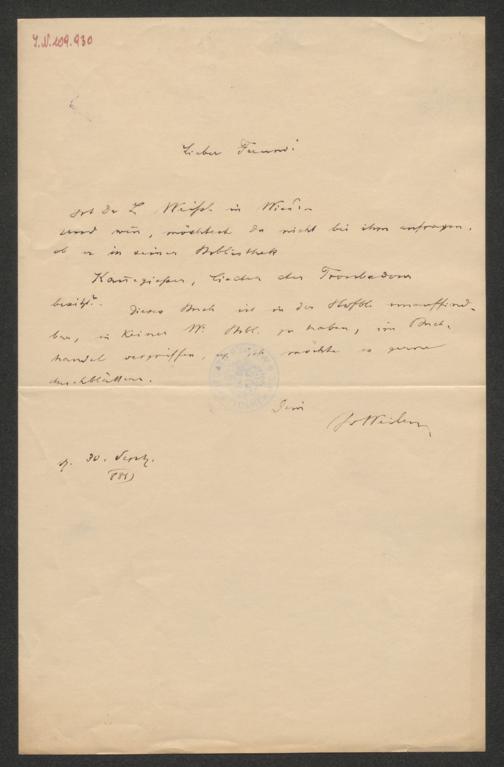 I.N. 109.930
Lieber Freund!
Ist Dr L. in Wien
und wenn, möchtest du nicht bei ihm anfragen,
ob er in seiner Bibliothek
Kannegiesser, Lieder der Troubadours
besitzt. Dieses Buch ist in der Hofbbl. unauffind-
bar, in keiner W. Bibl. zu haben, im Buch-
handel vergriffen, ich möchte es gerne
durchblättern.
Dein
30.